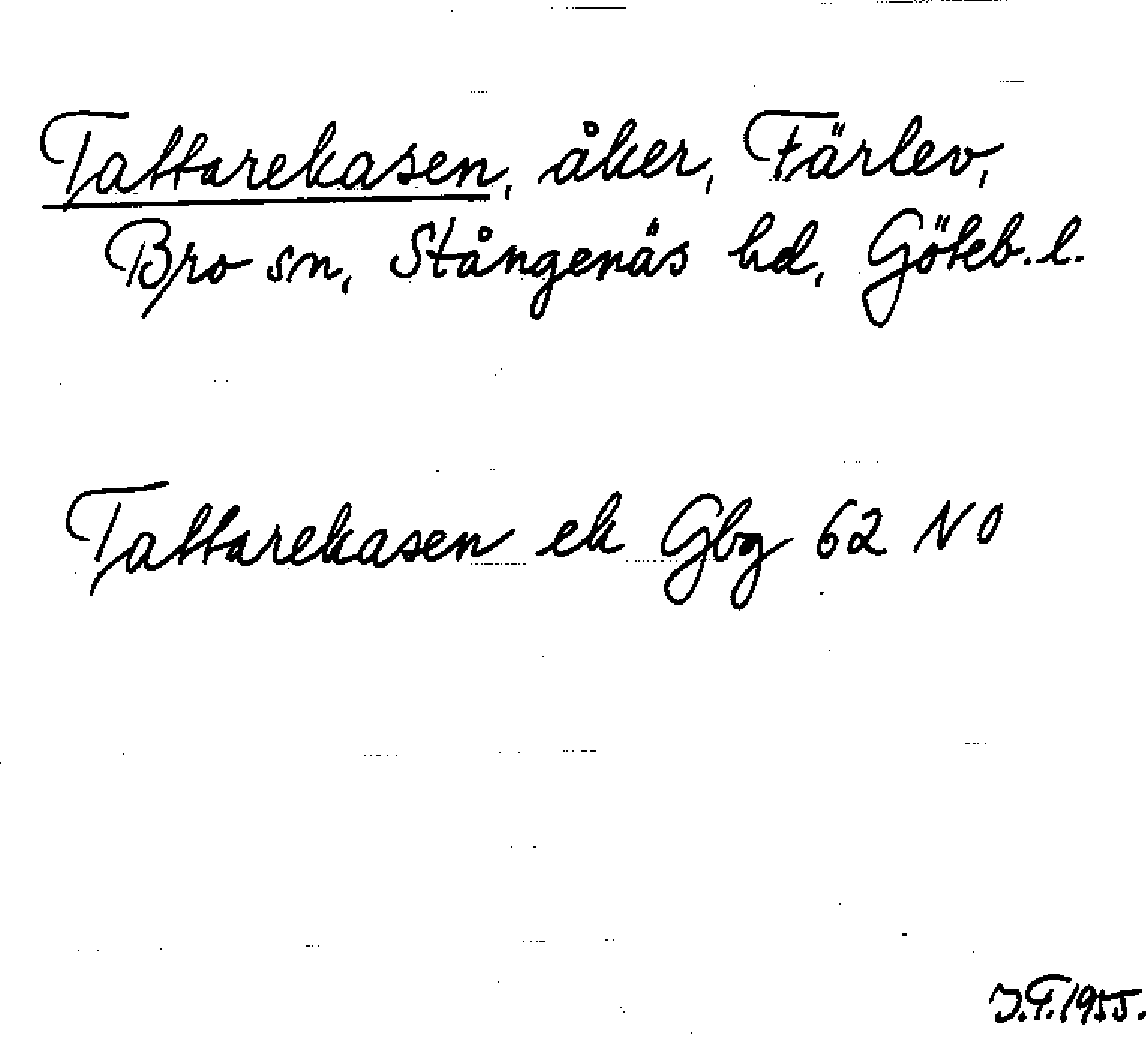 Tattarekasen, åker, Färlev,
Bro sn, Stångenäs hd, Göteb. l.
Tattarekasen ek Gbg 62 NO
J.T. 1955.